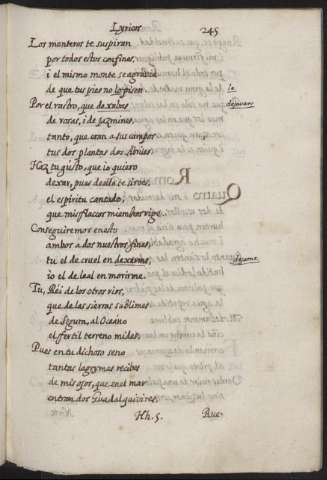 Lyricas. 245
Los monteros te suspiran
por todos estos confines,
i el mismo monte se agravia
de que tus pies no lo pisen
Por el rastro, que dexabas
de rosas, i de jazmines,
tanto, que eran a sus campos
tus dos plantas dos Abriles.
Haz tu gusto, que io quiero
dexar, pues de ello te sirves,
el espiritu cansado,
que mis flacos miembros rige.
Conseguiremos en esto
ambos a dos nuestros fines,
tu el de cruel en dexarme,
io el de leal en morirme.
Tu, Rei de los otros rios,
que de las sierras sublimes
de Segura, al Oceano
el fertil terreno mides,
Pues en tu dichoso seno
tantas lagrymas recibes
de mis ojos, que en el mar
entran dos Guadalquivires,
Hh. 5. Rue-